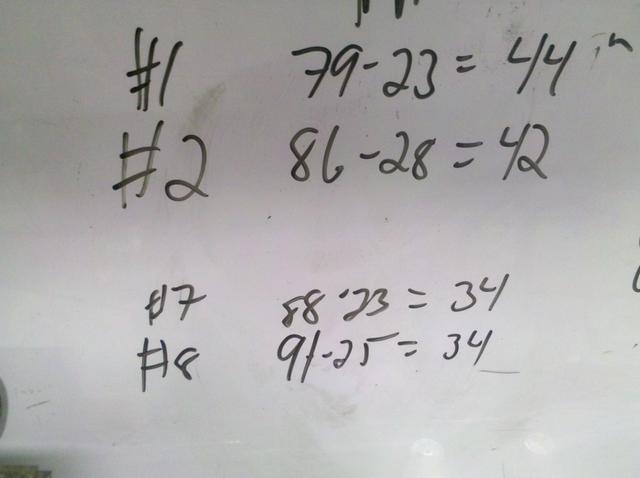 #1 79-23=44 in
#2 86-28=42
#7 88-23=34
#8 91-25=34